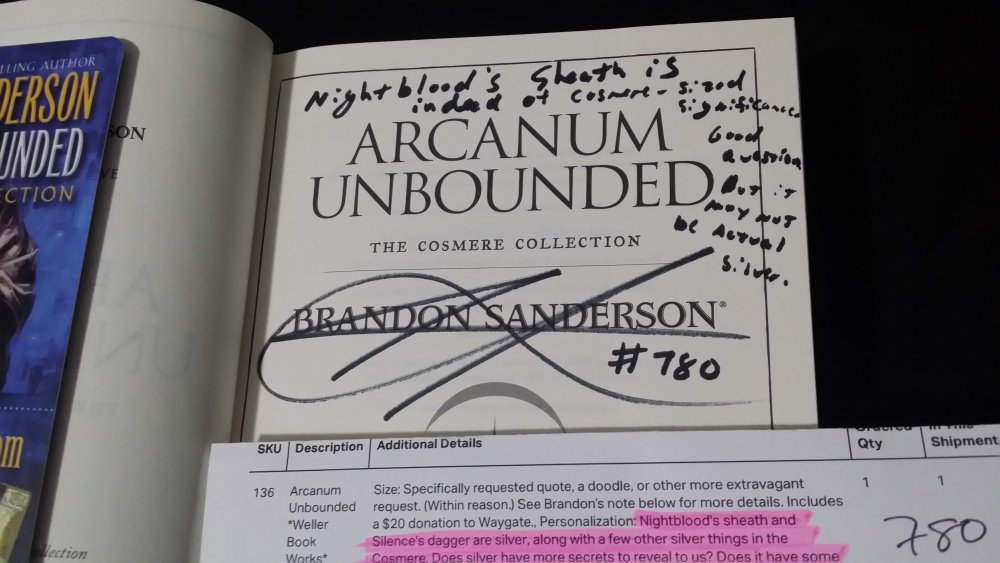 LLING AUTHOR
DERSON
UNDED
ECTION
om
SON
VE
ollection
Nightblood's Sheath is
indeed of cosmere-sized
significance
Good
question
But it
may not
be Actual
Silver.
ARCANUM
UNBOUNDED
THE COSMERE COLLECTION
BRANDON SANDERSON®
#780
SKU Description Additional Details Ordered Qty In This Shipment
136 Arcanum Unbounded *Weller Book Works*
Size: Specifically requested quote, a doodle, or other more extravagant
request. (Within reason.) See Brandon's note below for more details. Includes
a $20 donation to Waygate., Personalization: Nightblood's sheath and
Silence's dagger are silver, along with a few other silver things in the
Cosmere. Does silver have more secrets to reveal to us? Does it have some
1 1
780